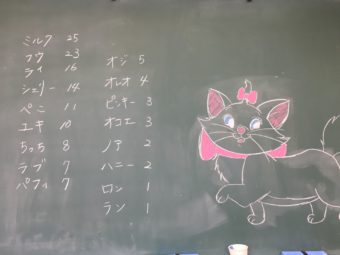 ミルク 25
フウ 23
ライ 16
シェリー 14
ペこ 11
ユキ 10
ちっち 8
ラブ 7
パフィ 7
オジ 5
オレオ 4
ピッキー 3
オコエ 3
ノア 2
ハニー 2
ロン 1
ラン 1